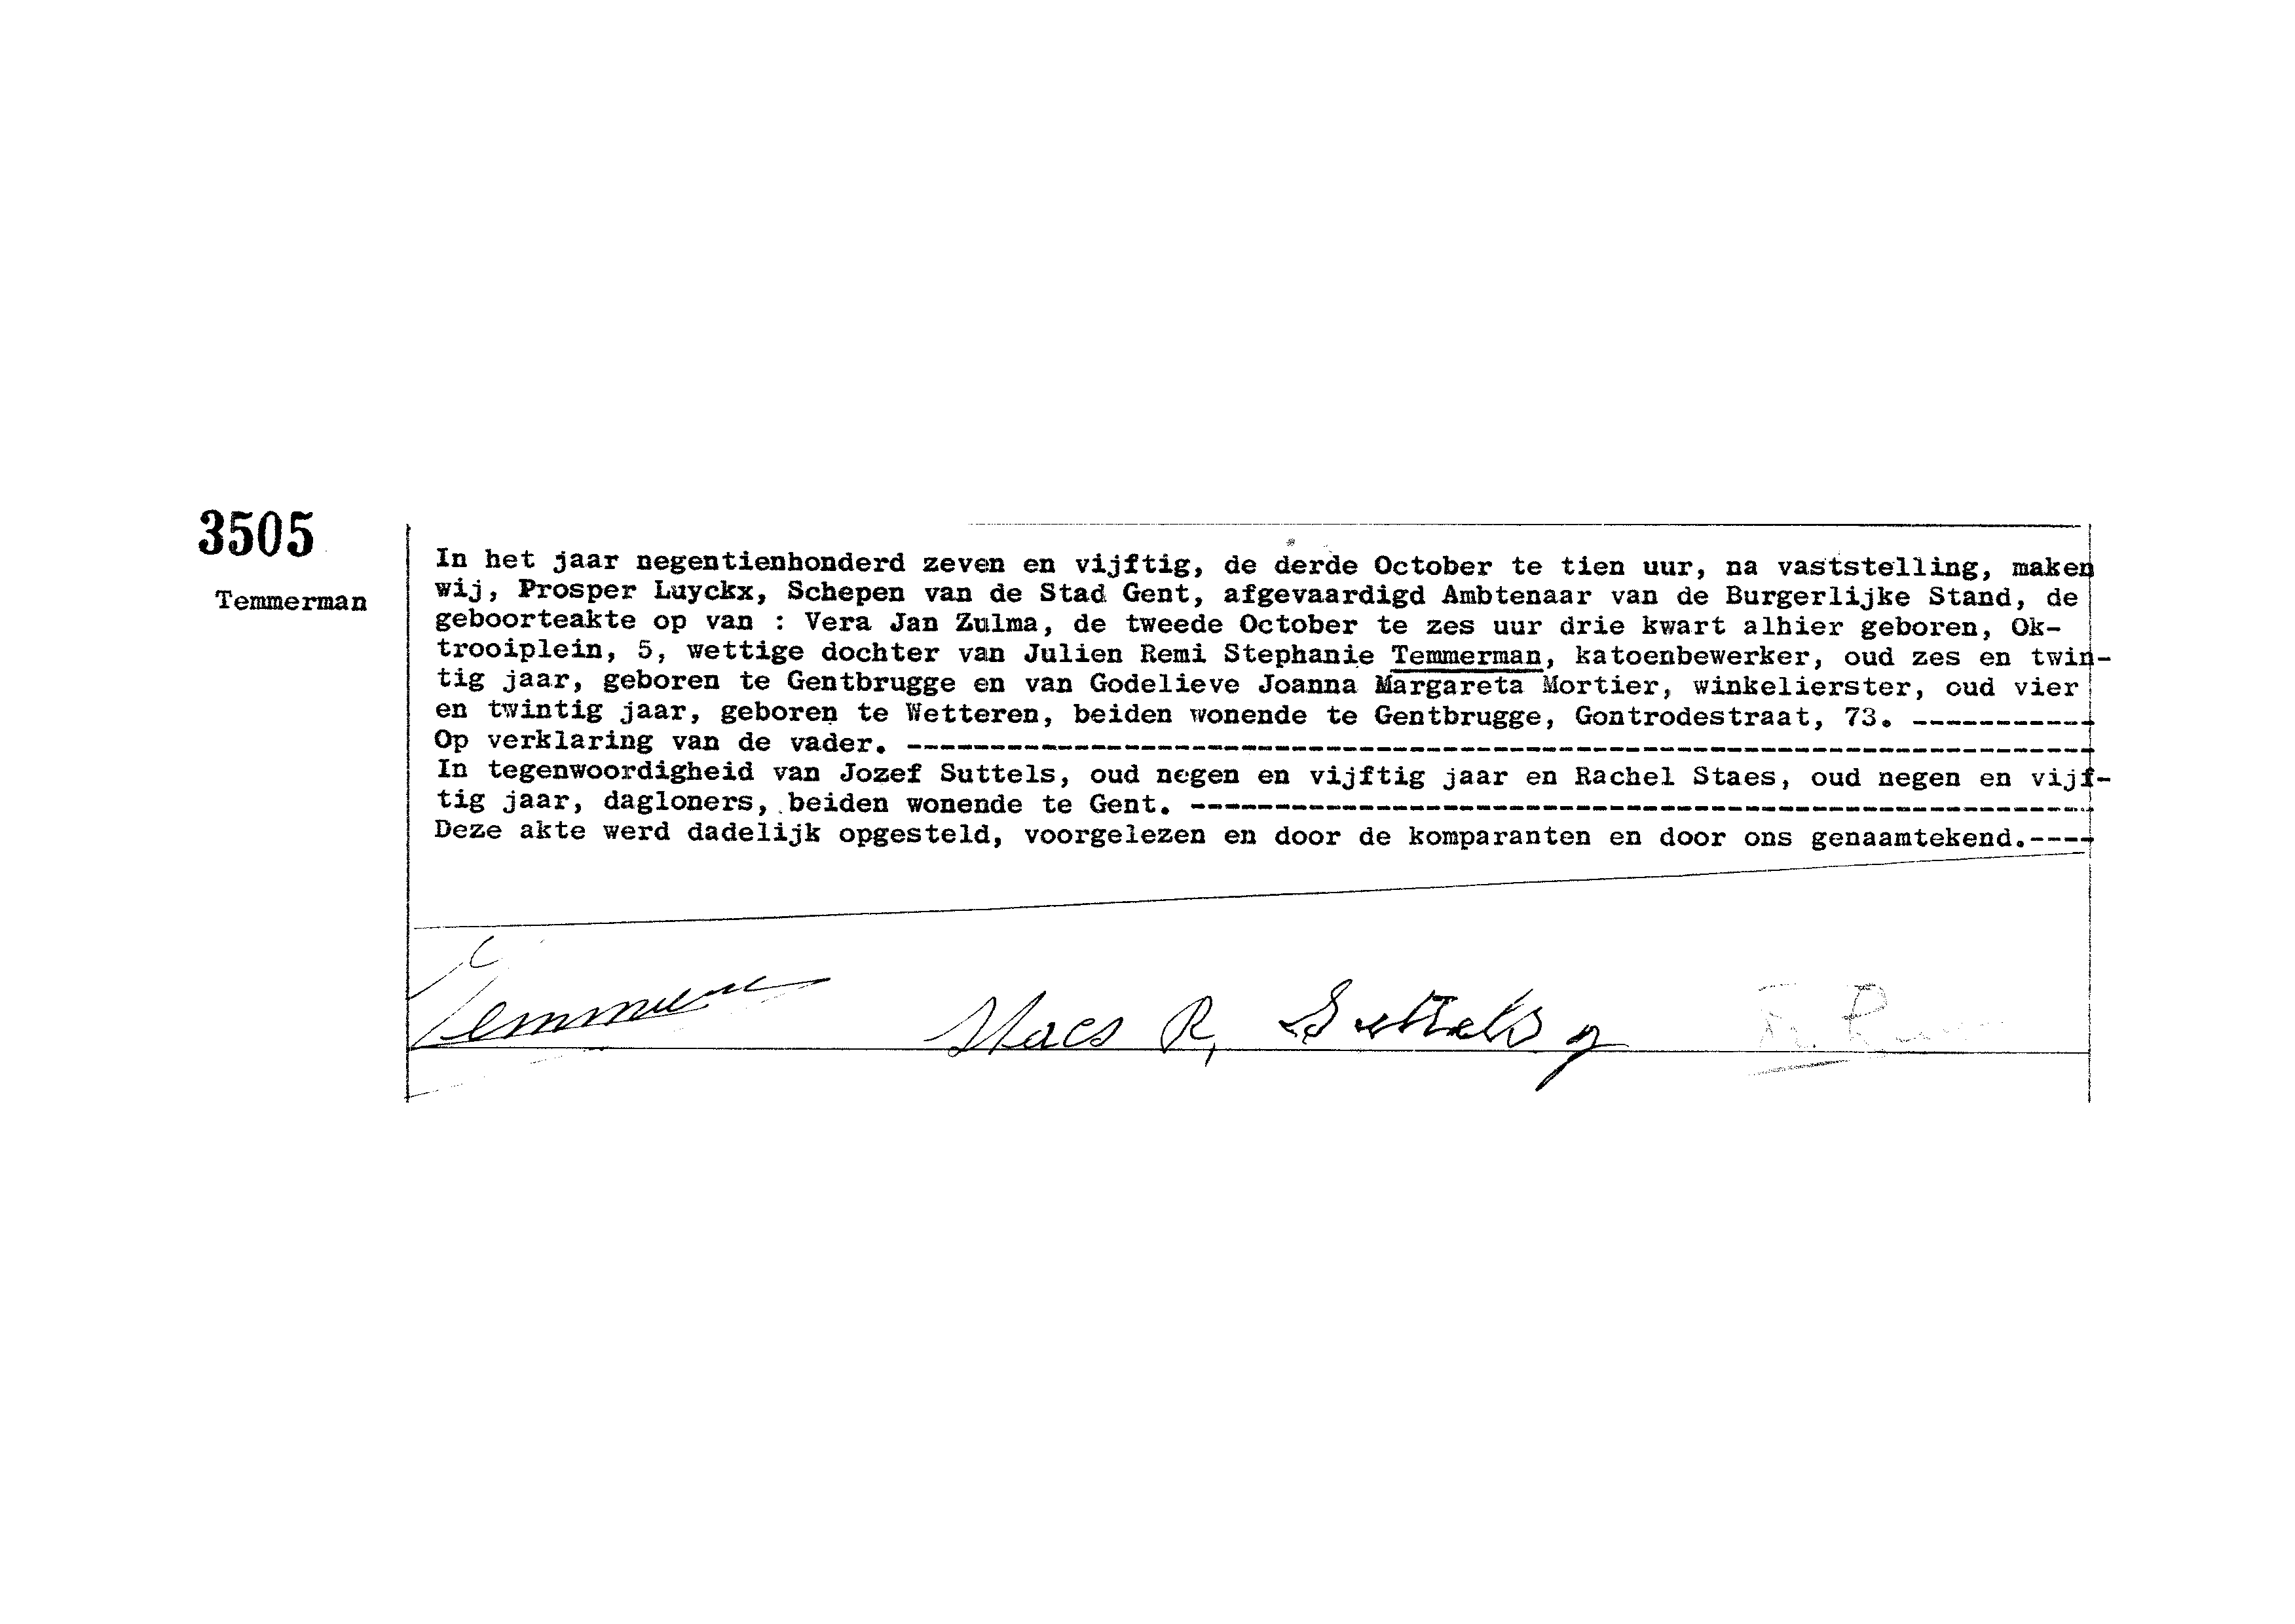 3505
Temmerman
In het jaar negentienhonderd zeven en vijftig, de derde October te tien uur, na vaststelling, maken
wij, Prosper Luyckx, Schepen van de Stad Gent, afgevaardigd Ambtenaar van de Burgerlijke Stand, de
geboorteakte op van : Vera Jan Zulma, de tweede October te zes uur drie kwart alhier geboren, Ok-
trooiplein, 5, wettige dochter van Julien Remi Stephanie Temmerman, katoenbewerker, oud zes en twin-
tig jaar, geboren te Gentbrugge en van Godelieve Joanna Margareta Mortier, winkelierster, oud vier
en twintig jaar, geboren te Wetteren, beiden wonende te Gentbrugge, Gontrodestraat, 73. -----------
Op verklaring van de vader. ----------------------------------------------------------------------
In tegenwoordigheid van Jozef Suttels, oud negen en vijftig jaar en Rachel Staes, oud negen en vijf-
tig jaar, dagloners, beiden wonende te Gent. ------------------------------------------------------
Deze akte werd dadelijk opgesteld, voorgelezen en door de komparanten en door ons genaamtekend.----
Staes R, Suttels J